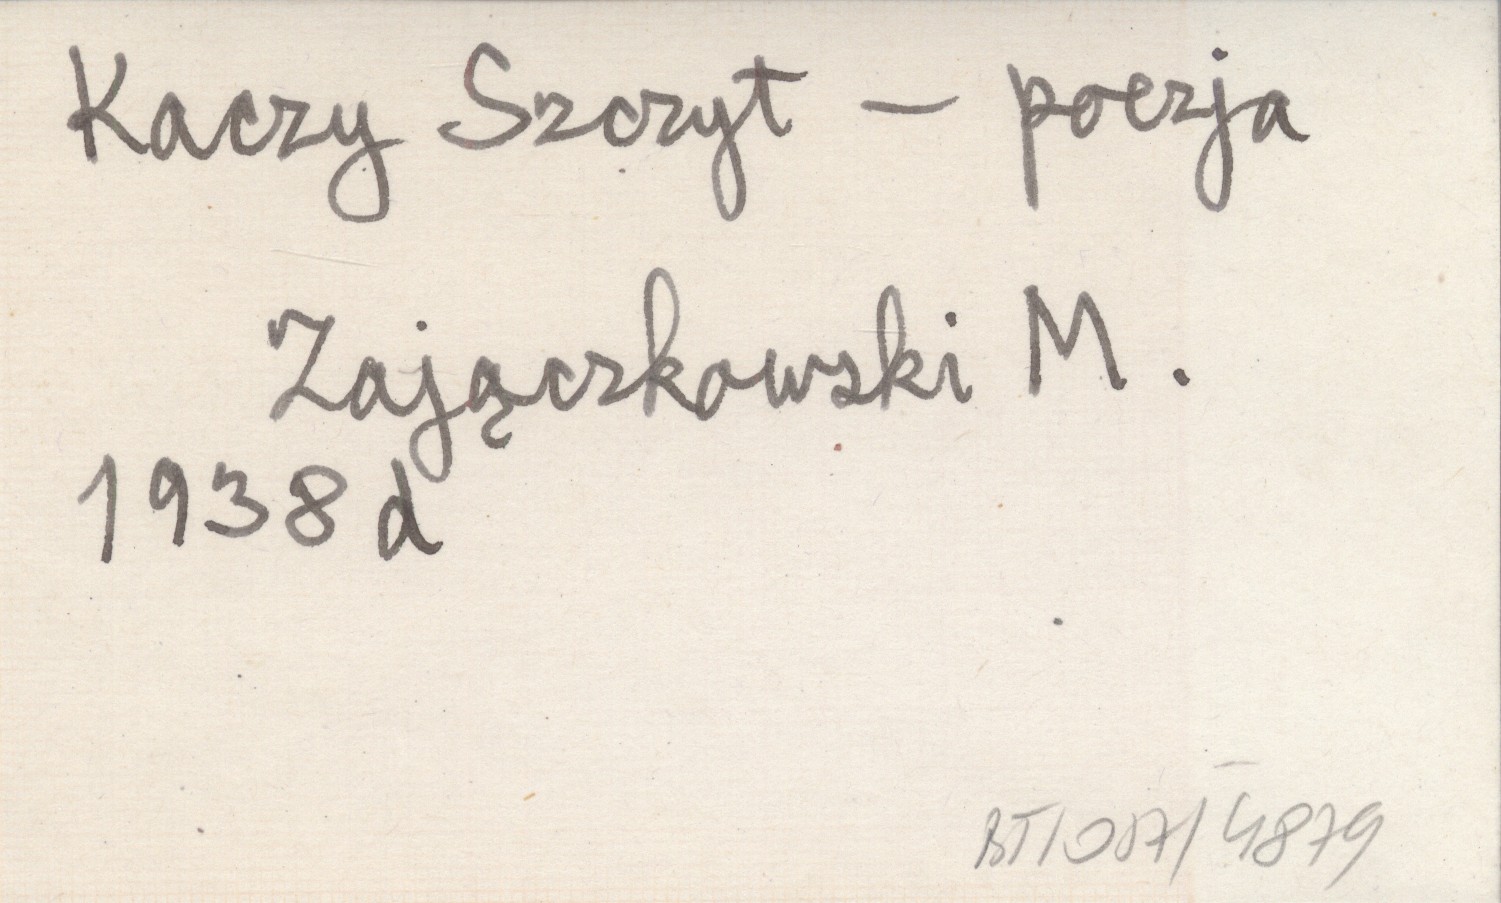 Kaczy Szczyt – poezja
Zajączkowski M.
1938 d
BT/087/4879